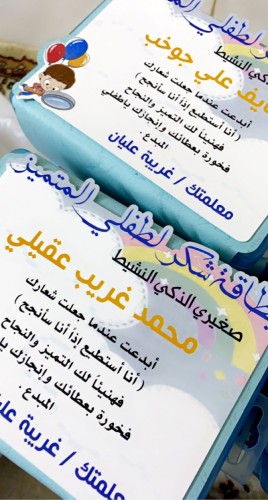 شكر لطفلي المتميز
الذكي النشيط
علي جوخب
أبدعت عندما جعلت شعارك
( أنا أستطيع إذاً أنا سأنجح )
فهنيئاً لك التميز والنجاح
فخورة بعطائك وإنجازك ياطفلي
المبدع.
معلمتك / غريبة عليان
بطاقة شكر لطفلي المتميز
صغيري الذكي النشيط
محمد غريب عقيلي
أبدعت عندما جعلت شعارك
( أنا أستطيع إذاً أنا سأنجح )
فهنيئاً لك التميز والنجاح
فخورة بعطائك وإنجازك
المبدع.
معلمتك / غريبة